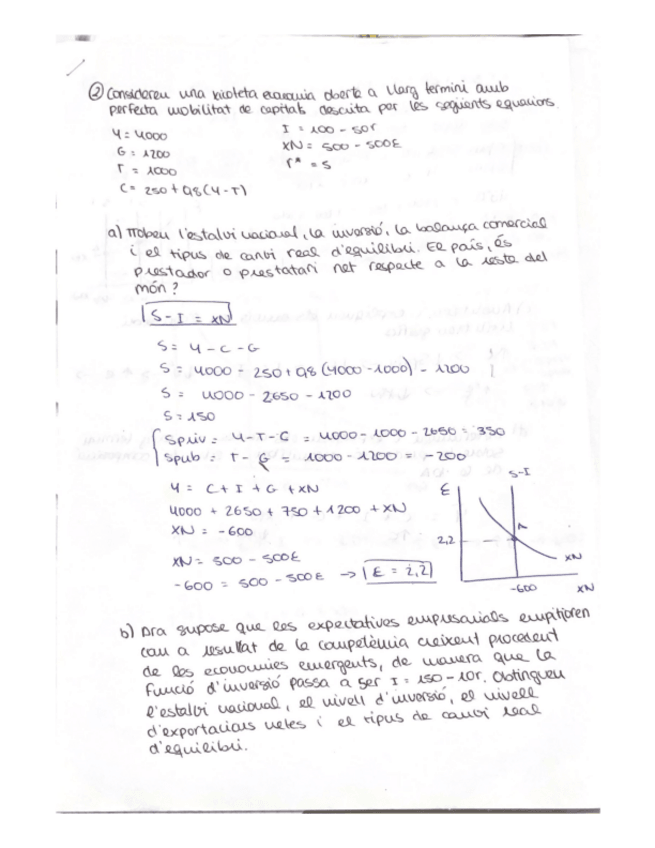 ② Considereu una xicoteta economia oberta a llarg termini amb
perfecta mobilitat de capitals descrita per les següents equacions.
Y = 4000
I = 100 - 50r
G = 1200
XN = 500 - 500E
T = 1000
r* = 5
C = 250 + 0,8 (Y - T)
a) Trobeu l'estalvi nacional, la inversió, la balança comercial
i el tipus de canvi real d'equilibri. El país, és
prestador o prestatari net respecte a la resta del
món?
S - I = XN
S = Y - C - G
S = 4000 - 250 + 0,8 (4000 - 1000) - 1200
S = 4000 - 2650 - 1200
S = 150
Spriv = Y - T - C = 4000 - 1000 - 2650 = 350
Spub = T - G = 1000 - 1200 = -200
Y = C + I + G + XN
4000 + 2650 + 750 + 1200 + XN
XN = -600
XN = 500 - 500E
-600 = 500 - 500E → E = 2,2
S-I
E
A
2,2
XN
-600
XN
b) Ara supose que les expectatives empresarials empitjoren
com a resultat de la competència creixent procedent
de les economies emergents, de manera que la
funció d'inversió passa a ser I = 150 - 10r. Obtingueu
l'estalvi nacional, el nivell d'inversió, el nivell
d'exportacions netes i el tipus de canvi real
d'equilibri.